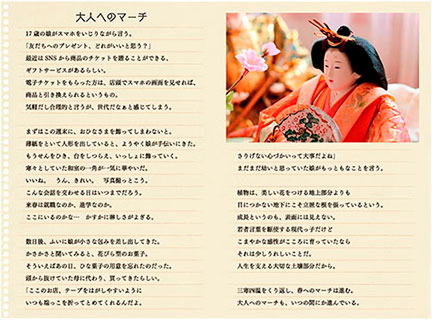 大人へのマーチ
17歳の娘がスマホをいじりながら言う。
「友だちへのプレゼント、どれがいいと思う?」
最近はSNSから商品のチケットを贈ることができる、
ギフトサービスがあるらしい。
電子チケットをもらった方は、店頭でスマホの画面を見せれば、
商品と引き換えられるというもの。
気軽だし合理的と言うが、世代だなぁと感じてしまう。
まずはこの週末に、おひなさまを飾ってしまわないと。
薄紙をといて人形を出していると、ようやく娘が手伝いにきた。
もうせんをひき、台をしつらえ、いっしょに飾っていく。
寒々としていた和室の一角が一気に華やいだ。
いいね。 うん、きれい。 写真撮っとこう。
こんな会話を交わせる日はいつまでだろう。
来春は就職なのか、進学なのか。
ここにいるのかな… かすかに淋しさがよぎる。
数日後、ふいに娘が小さな包みを差し出してきた。
かさかさと開いてみると、花びら型のお菓子。
そういえばあの日、ひな菓子の用意を忘れたのだった。
頭から抜けていた母に代わり、買ってきたらしい。
「ここのお店、テープをはがしやすいように
いつも端っこを折ってとめてくれるんだよ。
さりげない心づかいって大事だよね」
まだまだ幼いと思っていた娘がもっともなことを言う。
植物は、美しい花をつける地上部分よりも
目につかない地下にこそ立派な根を張っているという。
成長というのも、表面には見えない。
若者言葉を駆使する現代っ子だけど
こまやかな感性がこころに育っていたなら
それは少しうれしいことだ。
人生を支える大切な土壌部分だから。
三寒四温をくり返し、春へのマーチは進む。
大人へのマーチも、いつの間にか進んでいる。